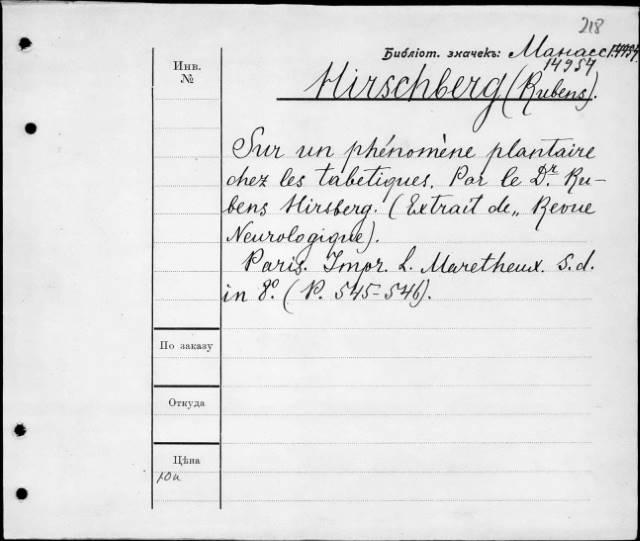 218
Библiот. значекъ: Манасс. 14954
14954
Инв.
№
Hirschberg (Rubens).
Sur un phénomène plantaire
chez les tabetiques. Par le Dr. Ru-
bens Hirsberg. (Extrait de „ Revue
Neurologique).
Paris. Impr. L. Maretheux. S. d.
in 8º. (P. 545-546).
По заказу
Откуда
Цѣна